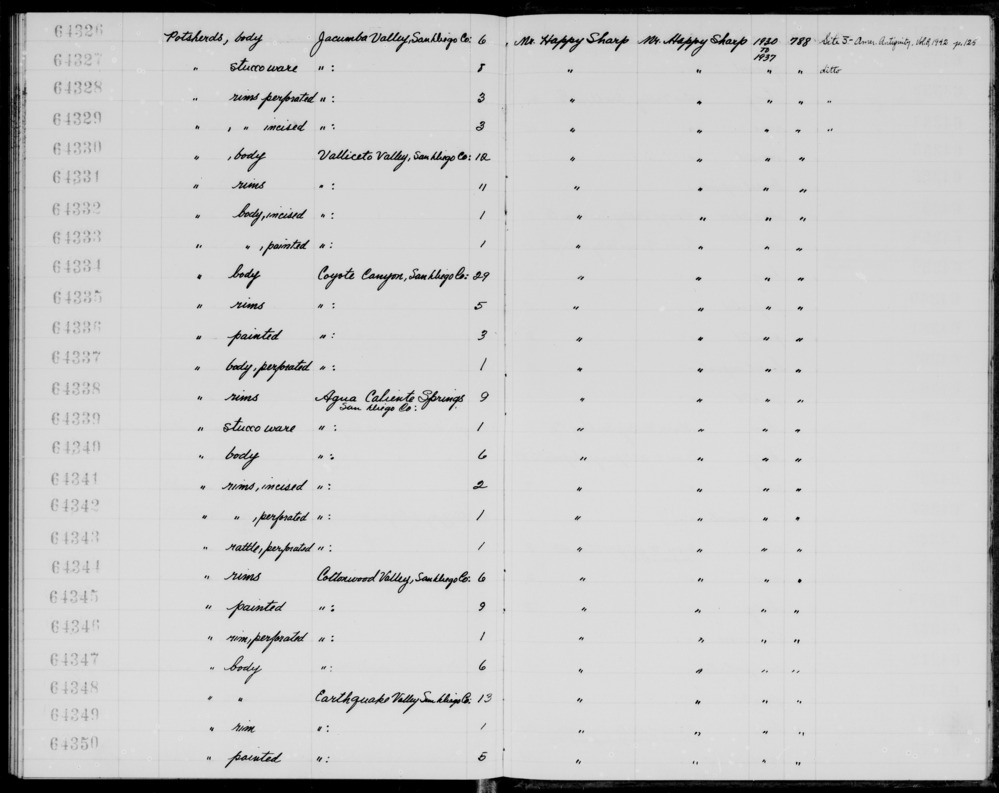 64326 Potsherds, body Jacumba Valley, San Diego Co: 6 , Mr. Happy Sharp Mr. Happy Sharp 1930 788 Site 3- Amer. Antiquity, 1942 p. 125
TO
1937
64327 " stucco ware ": 8 " " " " ditto
64328 " rims perforated ": 3 " " " " "
64329 " , " incised ": 3 " " " " "
64330 " , body Valliceto Valley, San Diego Co: 12 " " " "
64331 " rims ": 11 " " " "
64332 " body, incised ": 1 " " " "
64333 " " , painted ": 1 " " " "
64334 " body Coyote Canyon, San Diego Co: 29 " " " "
64335 " rims ": 5 " " " "
64336 " painted ": 3 " " " "
64337 " body, perforated ": 1 " " " "
64338 " rims Agua Caliente Springs 9 " " " "
San Diego Co:
64339 " stucco ware ": 1 " " " "
64340 " body ": 6 " " " "
64341 " rims, incised ": 2 " " " "
64342 " " , perforated ": 1 " " " "
64343 " rattle, perforated ": 1 " " " "
64344 " rims Cottonwood Valley, San Diego Co: 6 " " " "
64345 " painted ": 9 " " " "
64346 " rim, perforated ": 1 " " " "
64347 " body ": 6 " " " "
64348 " " Earthquake Valley San Diego Co: 13 " " " "
64349 " rim ": 1 " " " "
64350 " painted ": 5 " " " "